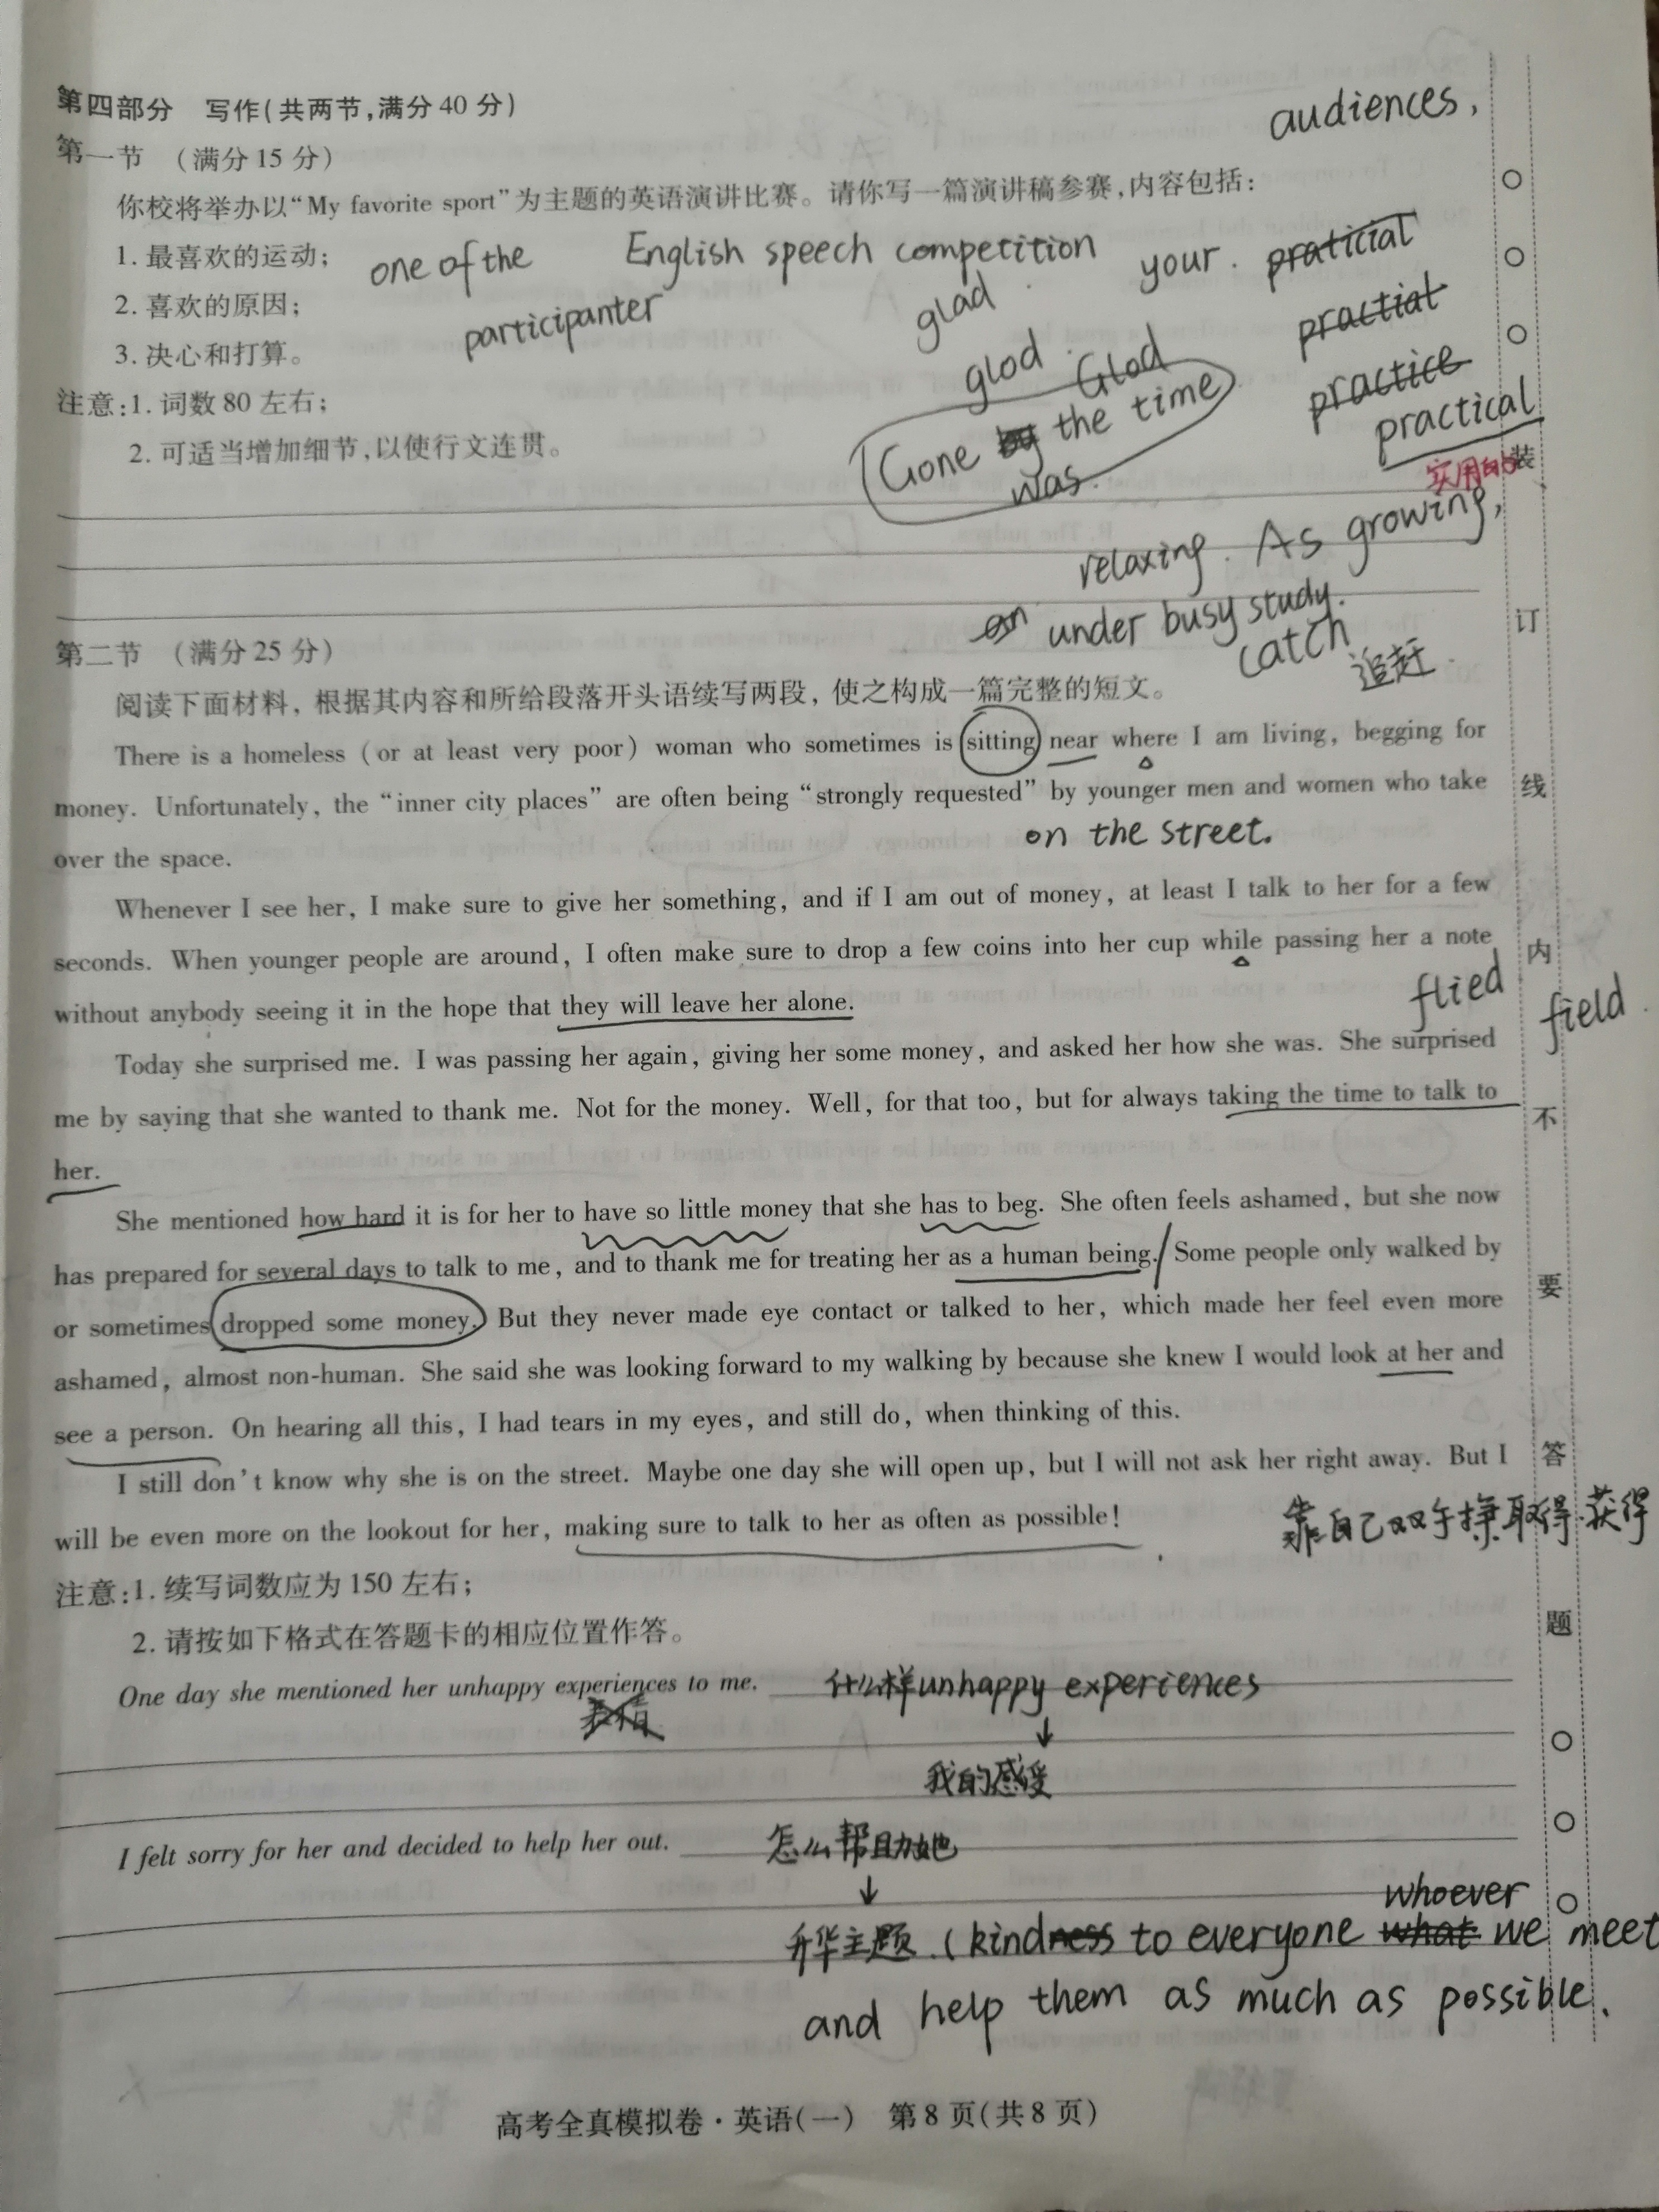 第四部分 写作(共两节,满分 40 分)
audiences,
第一节 (满分 15 分)
你校将举办以“My favorite sport”为主题的英语演讲比赛。请你写一篇演讲稿参赛,内容包括:
1. 最喜欢的运动;
one of the
English speech competition
your.
praticial
2. 喜欢的原因;
participanter
glad
practial
3. 决心和打算。
glod
Glod
practice
注意:1. 词数 80 左右;
Gone by the time
was
practical
2. 可适当增加细节,以使行文连贯。
实用的
relaxing. As growing,
on under busy study.
catch
追赶
第二节 (满分 25 分)
阅读下面材料, 根据其内容和所给段落开头语续写两段, 使之构成一篇完整的短文。
There is a homeless (or at least very poor) woman who sometimes is sitting near where I am living, begging for
money. Unfortunately, the “inner city places” are often being “strongly requested” by younger men and women who take
over the space.
on the street.
Whenever I see her, I make sure to give her something, and if I am out of money, at least I talk to her for a few
seconds. When younger people are around, I often make sure to drop a few coins into her cup while passing her a note
without anybody seeing it in the hope that they will leave her alone.
flied
field.
Today she surprised me. I was passing her again, giving her some money, and asked her how she was. She surprised
me by saying that she wanted to thank me. Not for the money. Well, for that too, but for always taking the time to talk to
her.
She mentioned how hard it is for her to have so little money that she has to beg. She often feels ashamed, but she now
has prepared for several days to talk to me, and to thank me for treating her as a human being. Some people only walked by
or sometimes dropped some money. But they never made eye contact or talked to her, which made her feel even more
ashamed, almost non-human. She said she was looking forward to my walking by because she knew I would look at her and
see a person. On hearing all this, I had tears in my eyes, and still do, when thinking of this.
I still don't know why she is on the street. Maybe one day she will open up, but I will not ask her right away. But I
will be even more on the lookout for her, making sure to talk to her as often as possible!
靠自己双手 取得.获得
注意:1. 续写词数应为 150 左右;
2. 请按如下格式在答题卡的相应位置作答。
One day she mentioned her unhappy experiences to me.
什么样unhappy experiences
表情
我的感受
I felt sorry for her and decided to help her out.
怎么帮助她
whoever
升华主题.(kindness to everyone what we meet
and help them as much as possible.
高考全真模拟卷·英语(一) 第 8 页(共 8 页)
装
订
线
内
不
要
答
题